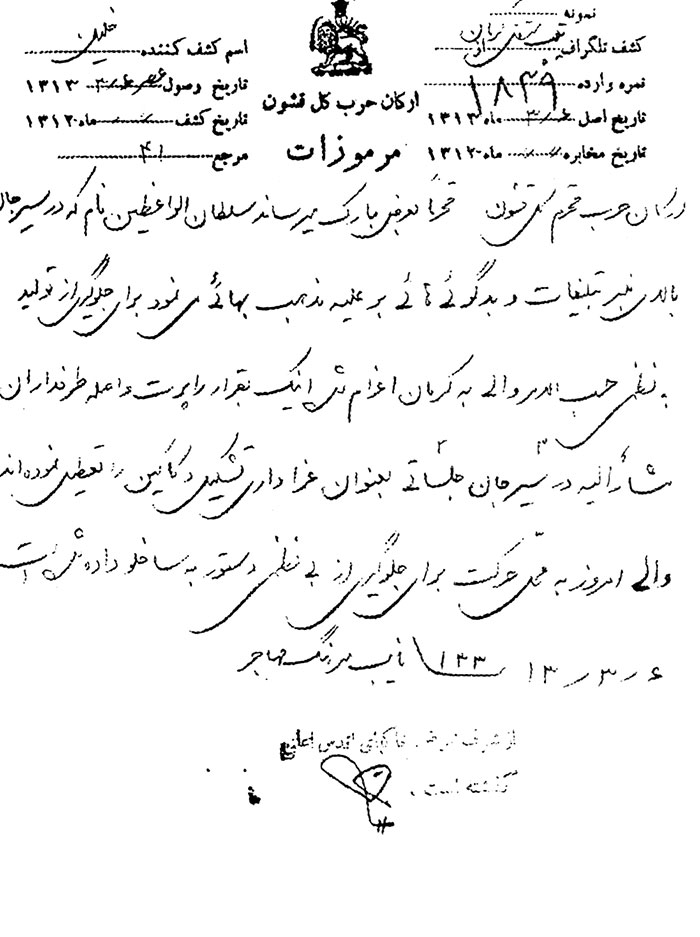 نمونه
کشف تلگراف تیپ مستقل کرمان
نمره وارده ۱۸۳۹
تاریخ اصل ۳/۶ ماه ۱۳۱۳
تاریخ مخابره ماه ۱۳۱۲
ارکان حرب کل قشون
مرموزات
اسم کشف کننده
تاریخ وصول ۳/۶ ۱۳۱۳
تاریخ کشف ماه ۱۳۱۲
مرجع ۴۱
ارکان حرب محترم کل قشون محترماً بعرض مبارک میرساند سلطان الواعظین نام که در سیرجان
بالای منبر تبلیغات و بدگوئی هائی بر علیه مذهب بهائی می نمود برای جلوگیری از تولید
بی نظمی حسب الامر والی به کرمان اعزام شده اینک بقرار راپرت واصله طرفداران
مشارالیه در سیرجان جلساتی بعنوان عزاداری تشکیل و دکاکین را تعطیل نموده اند
والی امروز به محل حرکت برای جلوگیری از بی نظمی دستور به ساخلو داده شده است
۶ ر ۳ ر ۱۳ ۱۳۳ نایب سرهنگ مهاجر
از شرف عرض خاکپای اقدس اعلی
گذشته است